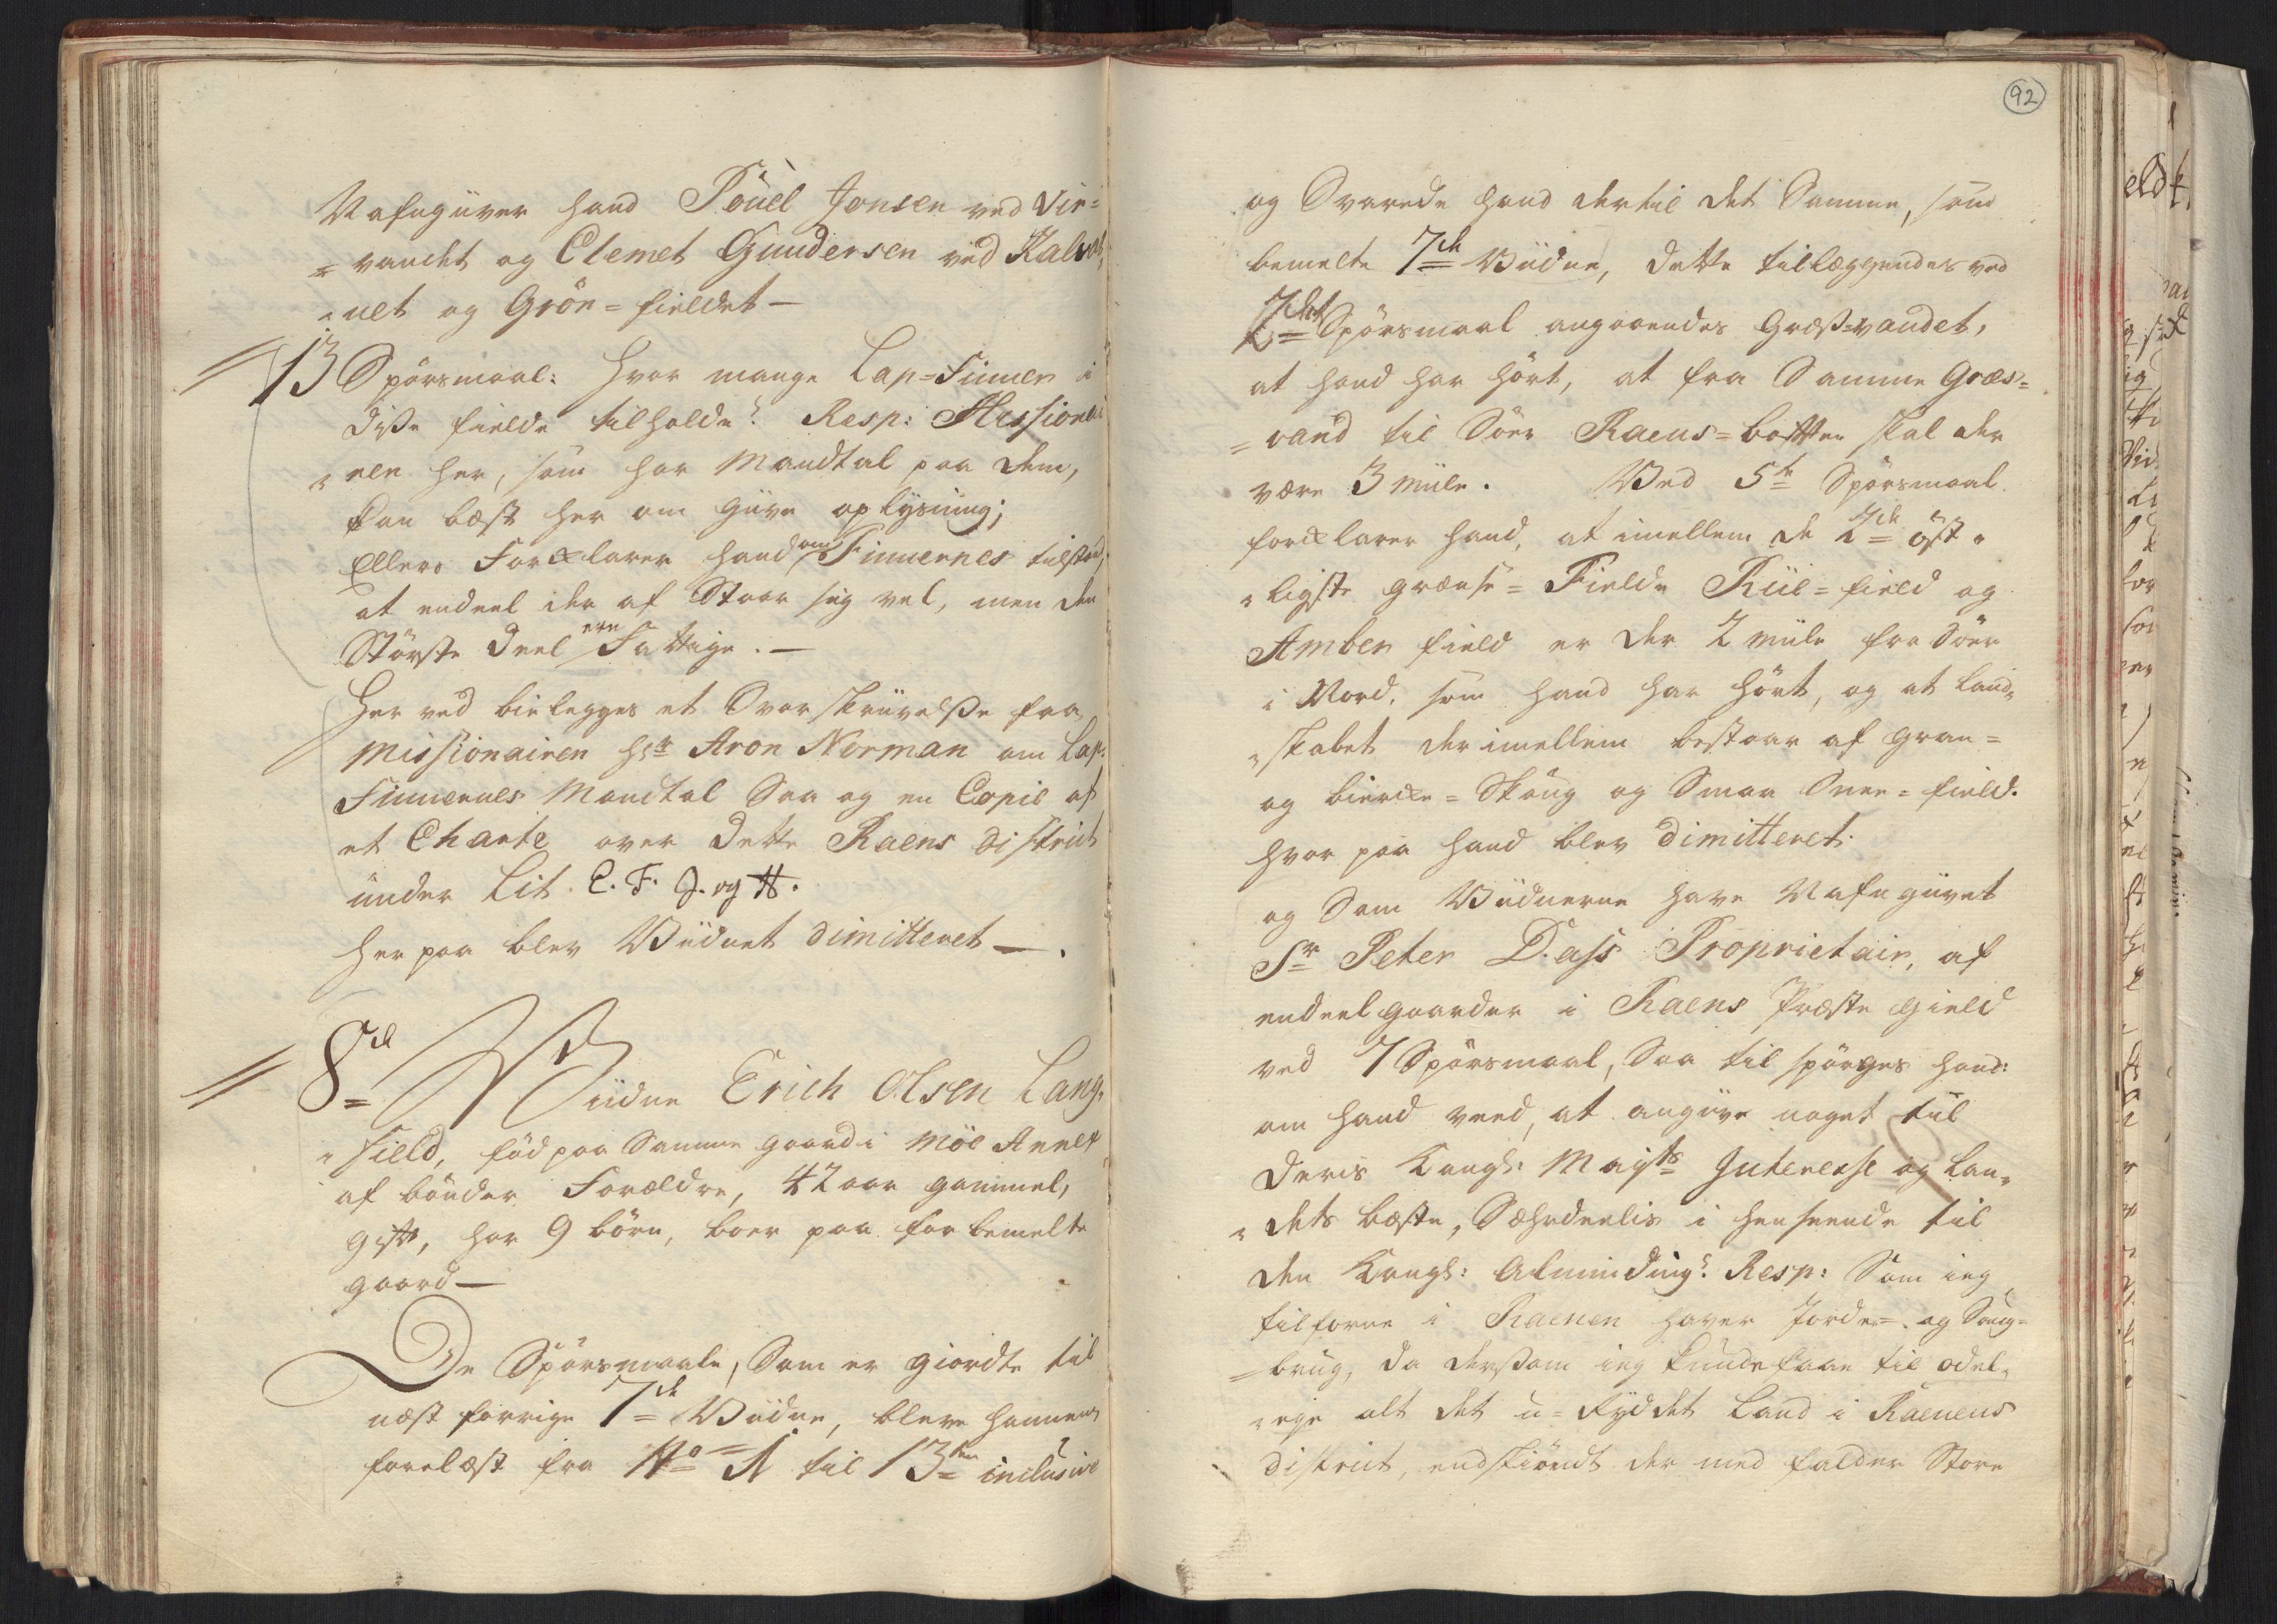 Nafngiver hand Pouel Jonsen ved Vir=
= vandet og Clemet Gundersen ved Kalvat,
„net og Grön=fieldet —
13 Spörsmaal: Hvor mange Lap-Finner i
Disse fielde tilholde? Resp: Missionai
„ren her, som har Mandtal paa dem,
kan best her om give oplysning;
Ellers Forklarer hand om Finnernes tilstand,
at endeel der af Staar sig vel, men den
Störste Deel ere Fattige. —
Her ved bielegges et Overskrivelsse fra
Missionairen Hr Aron Norman om Lap-
Finnernes Mandtal Saa og en Copie af
et Charte over Dette Raens District
under Lit. E. F. G. og H.
Her paa blev Vidnet dimitteret —.
8de Vidne Erich Olsen Lang-
„field, föd paa Samme gaard i Möe Annex
af bönder Forældre, 42 aar gammel,
gift, har 9 börn, boer paa forbemelte
gaard —
De Spörsmaale, Som er giordte til
næst forrige 7de Vidne, bleve hannem
forelæst fra No 1 til 13ten inclusive
92
og Svarede hand dertil det Samme, som
bemelte 7de Vidne, Dette tillæggendes ved
7det Spörsmaal angaaendes Græss=vandet,
at hand har hört, at fra Samme Græs=
= vand til Söer Raens=botten skal der
være 3 mile. Ved 5te Spörsmaal
forklarer hand, at imellem de 2de öst„
„ligste grændse=Fielde Riil=field og
Amber field er der 2 mile fra Söer
i Nord, som hand har hört, og at land„
„skabet der imellem bestaar af gran=
og bierke=Skoug og Smaa Snee=field.
hvor paa hand blev dimitteret.
og Som Vidnerne have Nafngivet
Sr Peter Dass Proprietair, af
endeel gaarder i Raens Præste gield
ved 7 Spörsmaal, Saa til spörges hand:
om hand veed, at angive noget til
Deris Kongl: Majts Interesse og Lan„
„dets beste, Særdeelis i henseende til
den Kongl: Alminding? Resp: Som ieg
tilforne i Raenen haver Jorde= og Saug=
=brug, da dersom ieg kunde faae til odel„
„eje alt det u=Ryddet Land i Raenens
District, endskiöndt der med falder Store